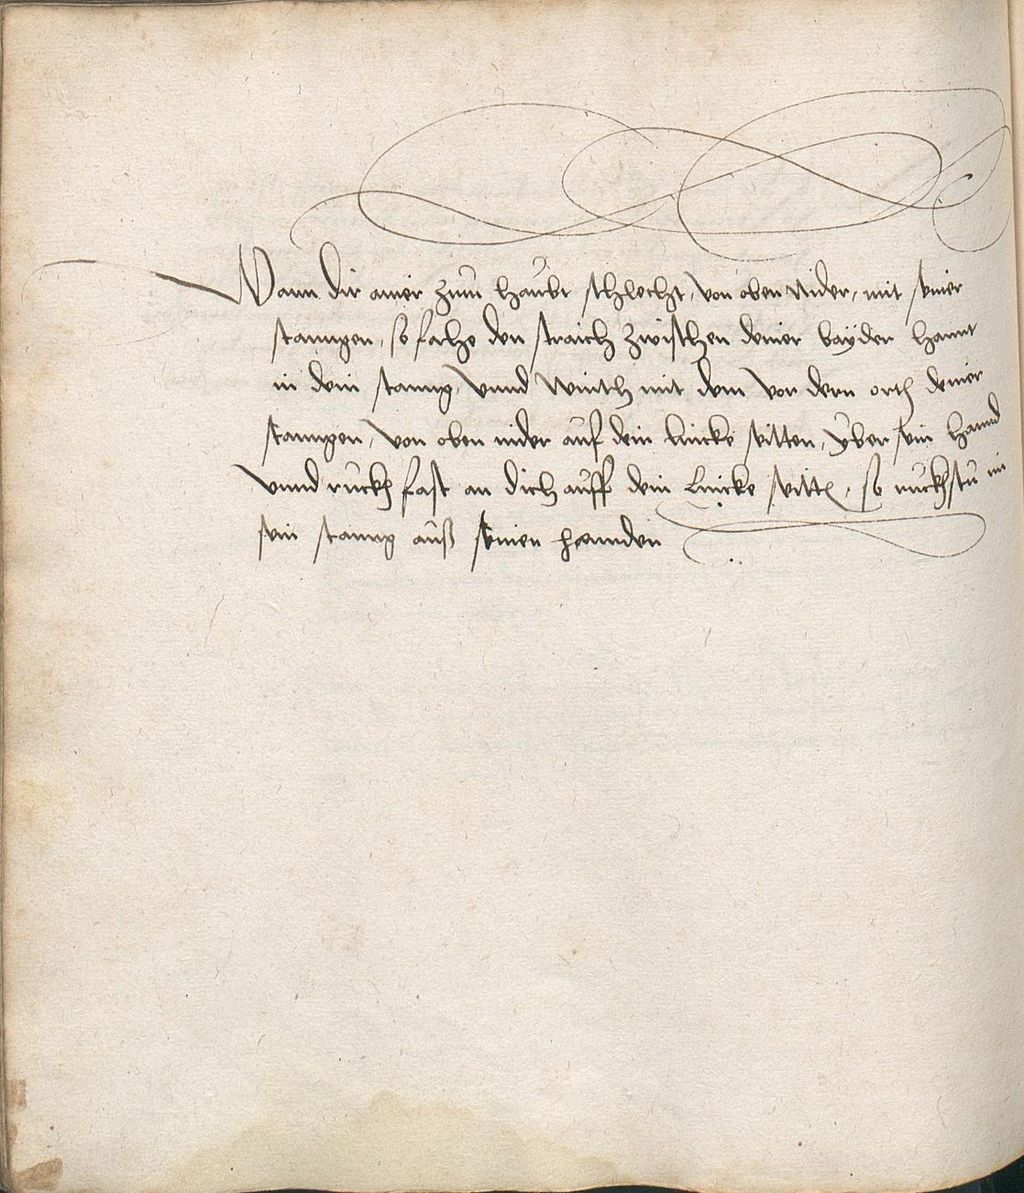 Wann dir ainer zům haübt schlecht, von oben Nider, mit seiner
stanngen, so fache den straich zwischen deiner bayder hannt
in dein stanng, Vnnd Winth mit dem vor dern orth deiner
stanngen, von oben nider aüf dein lincke seitten, vber sein hannd
vnnd rückh fast an dich aüff dein Lincke seitt, so rückhstü im
sein stanng aüß seinen hannden